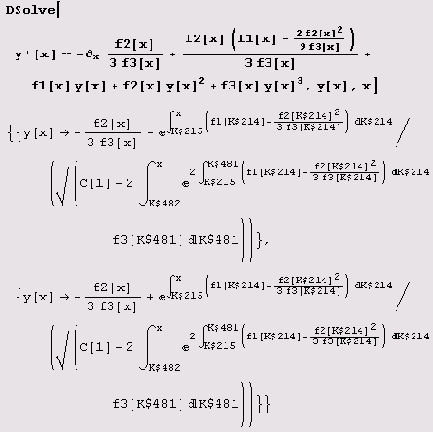 DSolve[
y'[x] == -∂x f2[x]/(3 f3[x]) + f2[x] (f1[x] - 2 f2[x]^2/(9 f3[x]))/(3 f3[x]) +
f1[x] y[x] + f2[x] y[x]^2 + f3[x] y[x]^3, y[x], x]
{{y[x] → -f2[x]/(3 f3[x]) - e^(∫_K$215^x (f1[K$214] - f2[K$214]^2/(3 f3[K$214])) dK$214) /
(√(C[1] - 2 ∫_K$482^x e^(2 ∫_K$215^K$481 (f1[K$214] - f2[K$214]^2/(3 f3[K$214])) dK$214)
f3[K$481] dK$481))},
{y[x] → -f2[x]/(3 f3[x]) + e^(∫_K$215^x (f1[K$214] - f2[K$214]^2/(3 f3[K$214])) dK$214) /
(√(C[1] - 2 ∫_K$482^x e^(2 ∫_K$215^K$481 (f1[K$214] - f2[K$214]^2/(3 f3[K$214])) dK$214)
f3[K$481] dK$481))}}